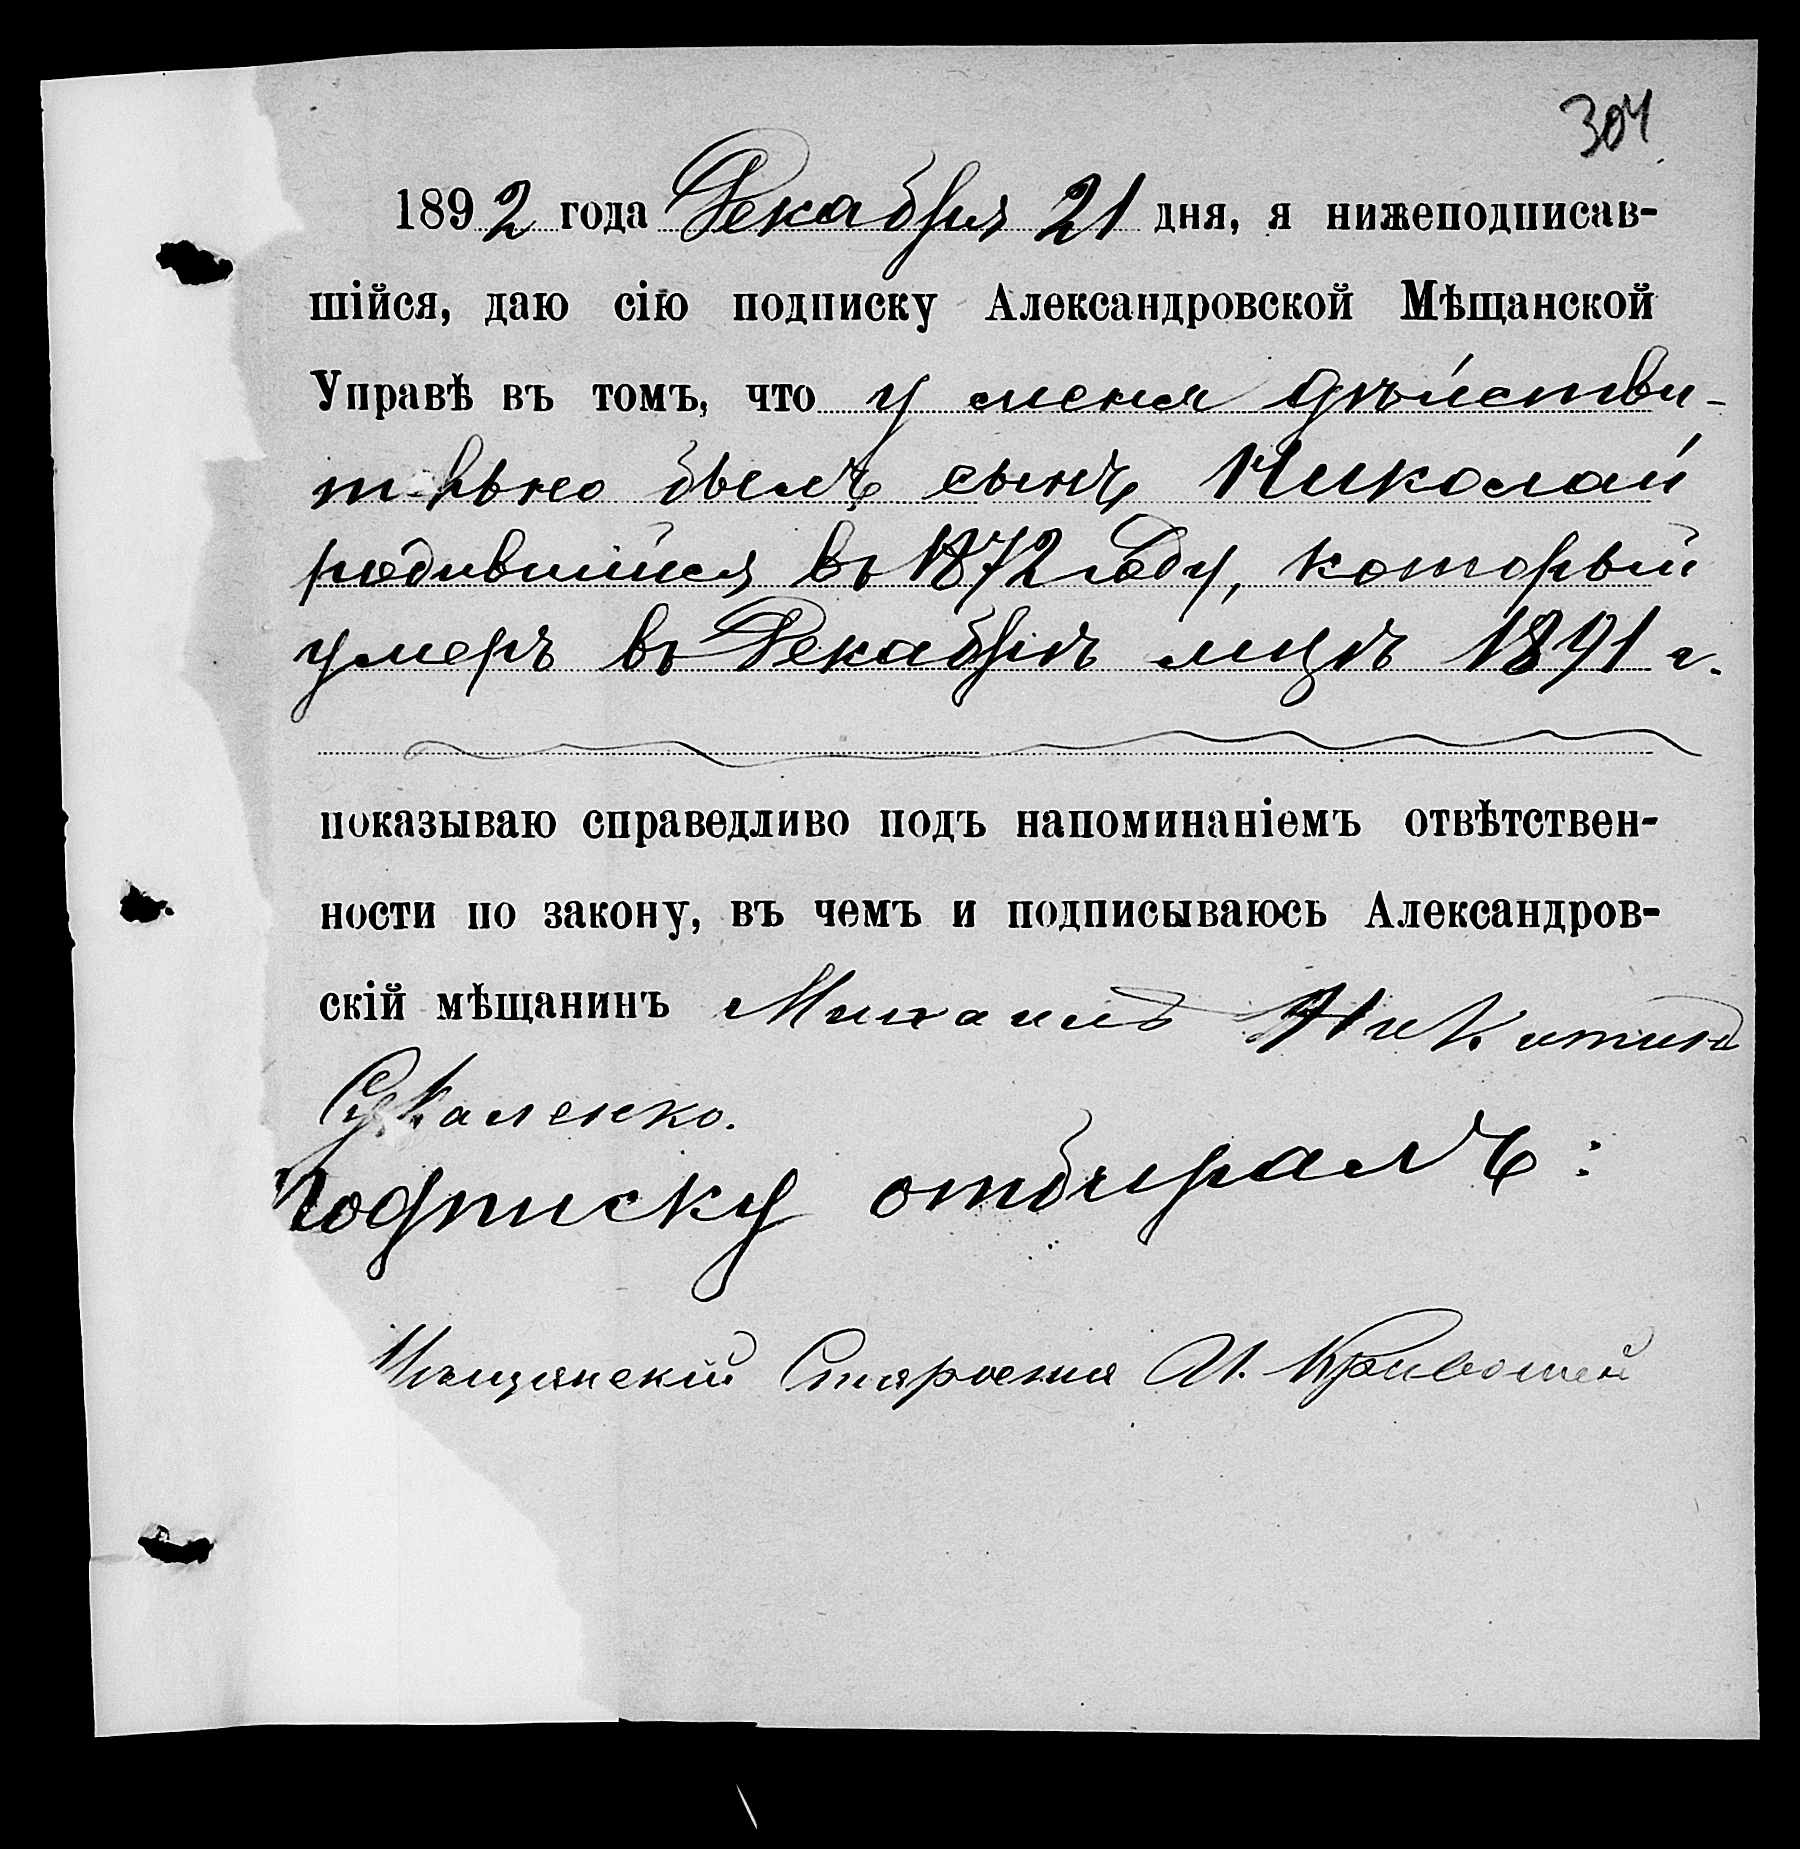 304
1892 года Декабря 21 дня, я нижеподписав-
шійся, даю сію подписку Александровской Мѣщанской
Управѣ въ томъ, что у меня дѣйстви-
тельно былъ сынъ Николай
родившійся въ 1872 году, который
умеръ въ Декабрѣ мцѣ 1891 г.
показываю справедливо подъ напоминаніемъ отвѣтствен-
ности по закону, въ чемъ и подписываюсь Александров-
скій мѣщанинъ Михаилъ Никитинъ
Сукаленко.
Подписку отбиралъ:
Мѣщанскій Староста И. Кривошей